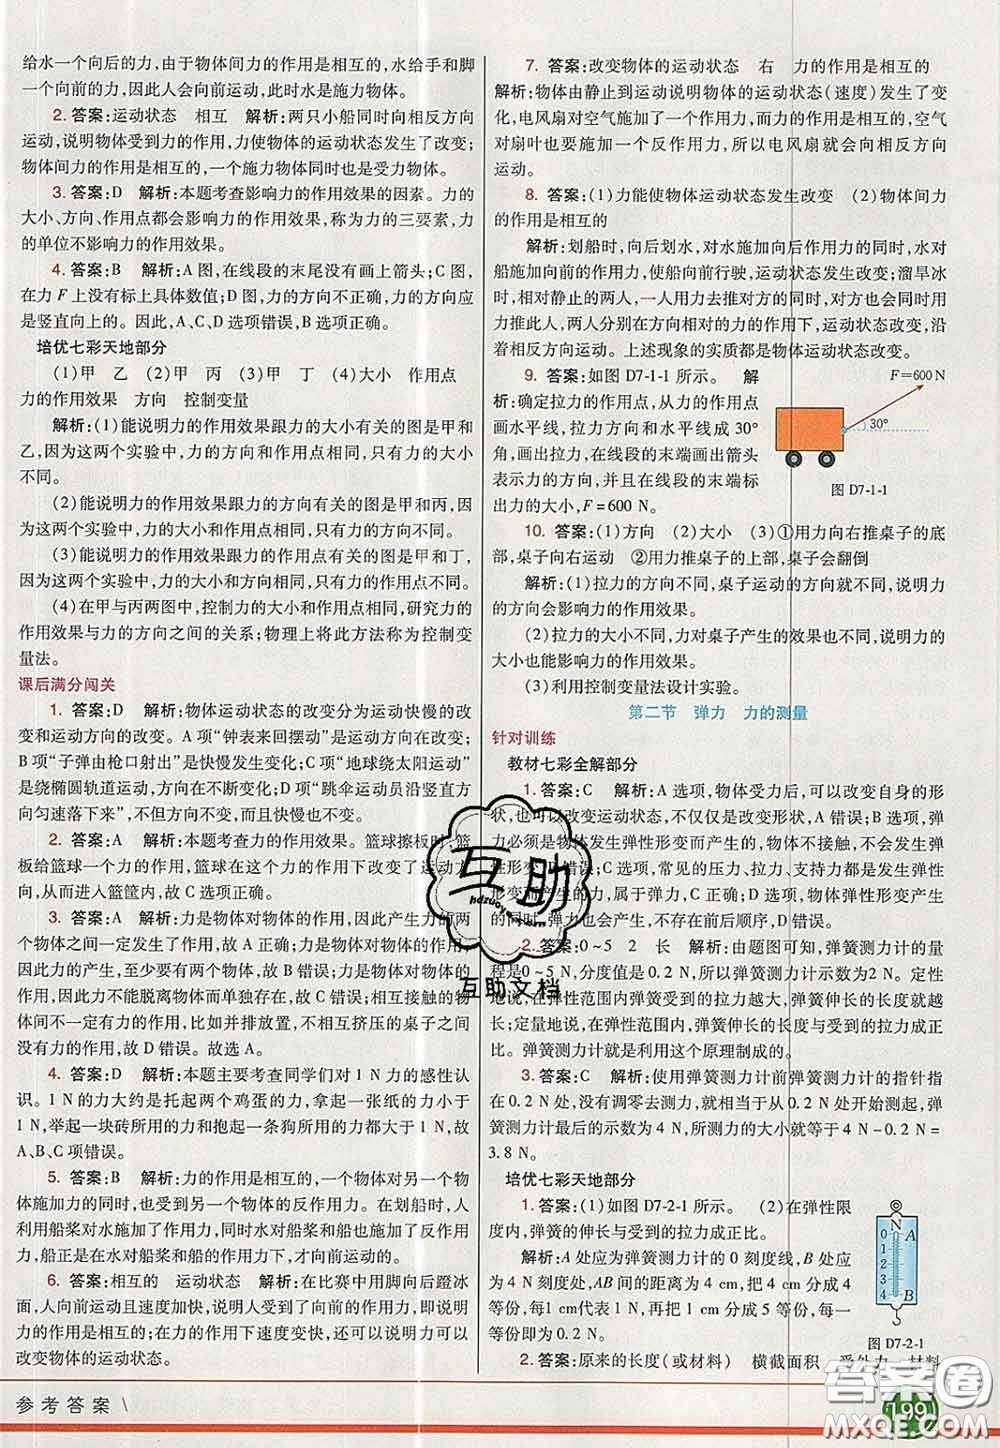 给水一个向后的力,由于物体间力的作用是相互的,水给手和脚
一个向前的力,因此人会向前运动,此时水是施力物体。
2. 答案:运动状态 相互 解析:两只小船同时向相反方向
运动,说明物体受到力的作用,力使物体的运动状态发生了改变;
物体间力的作用是相互的,一个施力物体同时也是受力物体。
3. 答案:D 解析:本题考查影响力的作用效果的因素。力的
大小、方向、作用点都会影响力的作用效果,称为力的三要素,力
的单位不影响力的作用效果。
4. 答案:B 解析:A图,在线段的末尾没有画上箭头;C图,
在力F上没有标上具体数值;D图,力的方向不正确,力的方向应
是竖直向上的。因此,A、C、D选项错误,B选项正确。
培优七彩天地部分
(1)甲 乙 (2)甲 丙 (3)甲 丁 (4)大小 作用点
力的作用效果 方向 控制变量
解析:(1)能说明力的作用效果跟力的大小有关的图是甲和
乙,因为这两个实验中,力的方向和作用点相同,只有力的大小
不同。
(2)能说明力的作用效果跟力的方向有关的图是甲和丙,
因为这两个实验中,力的大小和作用点相同,只有力的方向不同。
(3)能说明力的作用效果跟力的作用点有关的图是甲和丁,
因为这两个实验中,力的大小和方向相同,只有力的作用点不同。
(4)在甲与丙两图中,控制力的大小和作用点相同,研究力的
作用效果与力的方向之间的关系;物理上将此方法称为控制变
量法。
课后满分闯关
1. 答案:D 解析:物体运动状态的改变分为运动快慢的改
变和运动方向的改变。A项“钟表来回摆动”,运动方向在改变;
B项“子弹由枪口射出”是快慢发生变化;C项“地球绕太阳运动”,
是绕椭圆轨道运动,运动方向在不断变化;D项“跳伞运动员沿竖直
方向匀速落下来”,不但方向不变,而且快慢也不变,故选D。
2. 答案:A 解析:本题考查力的作用效果。篮球擦板时,篮
板给篮球一个力的作用,篮球在这个力的作用下改变了运动方
向,从而进入篮筐内,故C选项正确。
3. 答案:A 解析:力是物体对物体的作用,因此产生力的两
个物体之间一定发生了作用,故A正确;力是物体对物体的作用,
因此力的产生,至少要有两个物体,故B错误;力是物体对物体的
作用,力不能脱离物体而存在,故C错误;相互接触的物
体间不一定有力的作用,比如并排放置,不相互挤压的桌子之间
没有力的作用,故D错误。故选A。
4. 答案:D 解析:本题主要考查同学们对1 N力的感性认
识。1 N的力大约是托起两个鸡蛋的力,拿起一张纸的力小于
1 N,举起一块砖所用的力和抱起一条狗所用的力都大于1 N,故
A、B、C项错误。
5. 答案:B 解析:力的作用是相互的,一个物体对另一个物
体施加力的同时,也受到另一个物体的反作用力。在划船时,人
利用船桨对水施加了作用力,同时水对船桨和船也施加了反作用
力,船正是在水对船桨和船的作用力下,才向前运动的。
6. 答案:相互的 运动状态 解析:在比赛中用脚向后蹬冰
面,人向前运动且速度加快,说明人受到了向前的作用力,即说明
力的作用是相互的;在力的作用下速度变快,还可以说明力可以
改变物体的运动状态。
7. 答案:改变物体的运动状态 右 力的作用是相互的
解析:物体由静止到运动说明物体的运动状态(速度)发生了变
化,电风扇对空气施加了一个作用力,而力的作用是相互的,空气
对扇叶也要施加一个反作用力,所以电风扇会向相反方向
运动。
8. 答案:(1)力能使物体运动状态发生改变 (2)物体间力
的作用是相互的
解析:划船时,向后划水,对水施加向后作用力的同时,水对
船施加向前的作用力,使船向前行驶,运动状态发生改变;溜旱冰
时,相对静止的两人,一人用力去推对方的同时,对方对他也
施加推力,因此,两人分别在方向相对的力的作用下,运动状态改变,沿
着相反方向运动。上述现象的实质都是物体运动状态改变。
9. 答案:如图D7-1-1所示。 解
析:确定拉力的作用点,从力的作用点
画水平线,拉力方向和水平线成30°
角,画出拉力,在线段的末端画出箭头
表示力的方向,并且在线段的末端标
出力的大小,F=600 N。
F=600 N
30°
图 D7-1-1
10. 答案:(1)方向 (2)大小 (3)①用力向右推桌子的底
部,桌子向右运动 ②用力推桌子的上部,桌子会翻倒
解析:(1)拉力的方向不同,桌子运动的方向就不同,说明力
的方向会影响力的作用效果。
(2)拉力的大小不同,力对桌子产生的效果也不同,说明力的
大小也能影响力的作用效果。
(3)利用控制变量法设计实验。
第二节 弹力 力的测量
针对训练
教材七彩全解部分
1. 答案:C 解析:A选项,物体受力后,可以改变自身的形
状,也可以改变运动状态,不仅仅是改变形状,A错误;B选项,弹
力必须是物体发生弹性形变而产生的,物体不接触,不会发生
弹性形变,B错误;C选项,常见的压力、拉力、支持力都是发生弹性
形变而产生的力,属于弹力,C正确;D选项,物体弹性形变产生
的同时,弹力也会产生,不存在前后顺序,D错误。
2. 答案:0~5 2 长 解析:由题图可知,弹簧测力计的量
程是0~5 N,分度值是0.2 N,所以弹簧测力计示数为2 N。定性
地说,在弹性范围内弹簧受到的拉力越大,弹簧伸长的长度就越
长;定量地说,在弹性范围内,弹簧伸长的长度与受到的拉力成正
比。弹簧测力计就是利用这个原理制成的。
3. 答案:C 解析:使用弹簧测力计前弹簧测力计的指针指
在0.2 N处,没有调零去测力,就相当于从0.2 N处开始测起,弹
簧测力计最后的示数为4 N,所测力的大小就等于4 N-0.2 N=
3.8 N。
培优七彩天地部分
1. 答案:(1)如图D7-2-1所示。 (2)在弹性限
度内,弹簧的伸长与受到的拉力成正比。
解析:A处应为弹簧测力计的0刻度线,B处应
为4 N刻度处,AB间的距离为4 cm,把4 cm分成4
等份,每1 cm代表1 N,再把1 cm分成5等份,每一
等份即为0.2 N。
N
0
1
2
3
4
A
B
图 D7-2-1
2. 答案:原来的长度(或材料) 横截面积 受外力 材料
参考答案
199
互助
互助文档
答案圈
MXQE.COM